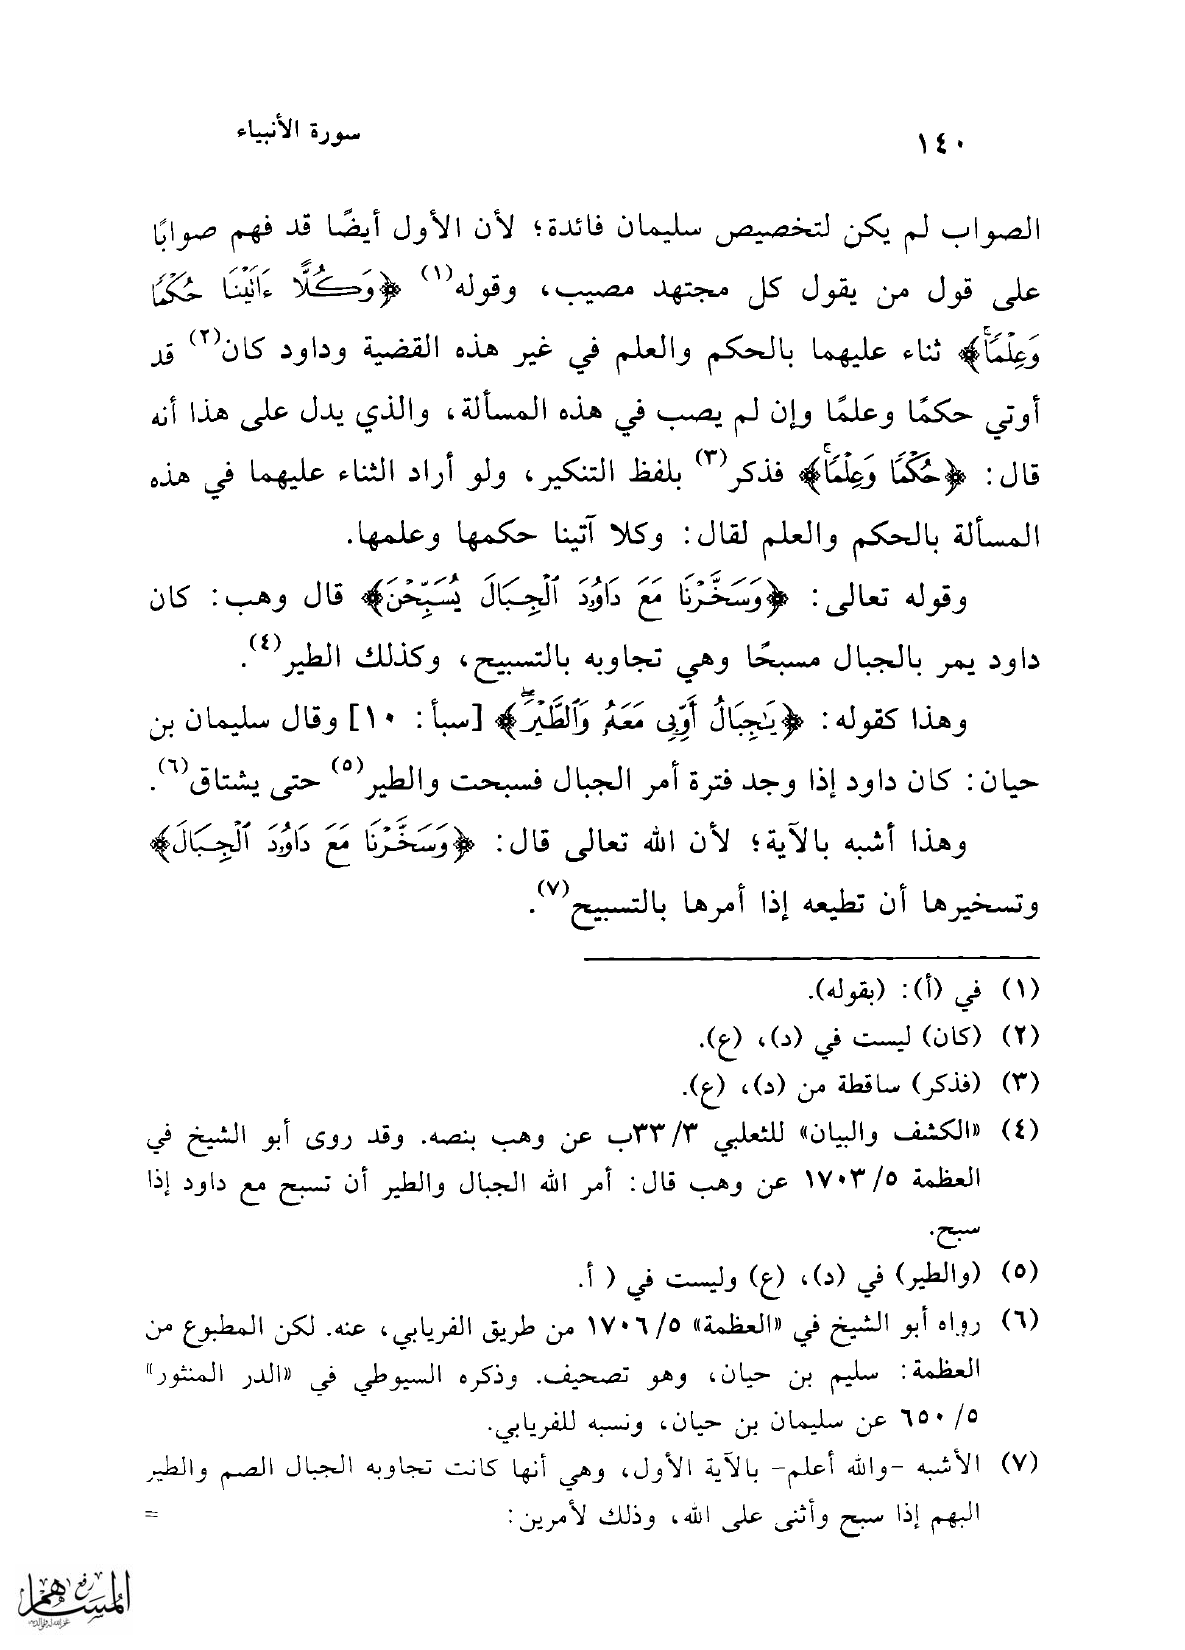 ١٤٠ سورة الأنبياء
الصواب لم يكن لتخصيص سليمان فائدة؛ لأن الأول أيضًا قد فهم صوابًا
على قول من يقول كل مجتهد مصيب، وقوله(١) ﴿وَكُلًّا ءَاتَيْنَا حُكْمًا
وَعِلْمًاۚ﴾ ثناء عليهما بالحكم والعلم في غير هذه القضية وداود كان(٢) قد
أوتي حكمًا وعلمًا وإن لم يصب في هذه المسألة، والذي يدل على هذا أنه
قال: ﴿حُكْمًا وَعِلْمًاۚ﴾ فذكر(٣) بلفظ التنكير، ولو أراد الثناء عليهما في هذه
المسألة بالحكم والعلم لقال: وكلا آتينا حكمها وعلمها.
وقوله تعالى: ﴿وَسَخَّرْنَا مَعَ دَاوُۥدَ ٱلْجِبَالَ يُسَبِّحْنَ﴾ قال وهب: كان
داود يمر بالجبال مسبحًا وهي تجاوبه بالتسبيح، وكذلك الطير(٤).
وهذا كقوله: ﴿يَٰجِبَالُ أَوِّبِى مَعَهُۥ وَٱلطَّيْرَۖ﴾ [سبأ: ١٠] وقال سليمان بن
حيان: كان داود إذا وجد فترة أمر الجبال فسبحت والطير(٥) حتى يشتاق(٦).
وهذا أشبه بالآية؛ لأن الله تعالى قال: ﴿وَسَخَّرْنَا مَعَ دَاوُۥدَ ٱلْجِبَالَ﴾
وتسخيرها أن تطيعه إذا أمرها بالتسبيح(٧).
(١) في (أ): (بقوله).
(٢) (كان) ليست في (د)، (ع).
(٣) (فذكر) ساقطة من (د)، (ع).
(٤) «الكشف والبيان» للثعلبي ٣/ ٣٣ب عن وهب بنصه. وقد روى أبو الشيخ في
العظمة ٥/ ١٧٠٣ عن وهب قال: أمر الله الجبال والطير أن تسبح مع داود إذا
سبح.
(٥) (والطير) في (د)، (ع) وليست في ( أ.
(٦) رواه أبو الشيخ في «العظمة» ٥/ ١٧٠٦ من طريق الفريابي، عنه. لكن المطبوع من
العظمة: سليم بن حيان، وهو تصحيف. وذكره السيوطي في «الدر المنثور»
٥/ ٦٥٠ عن سليمان بن حيان، ونسبه للفريابي.
(٧) الأشبه -والله أعلم- بالآية الأول، وهي أنها كانت تجاوبه الجبال الصم والطير
البهم إذا سبح وأثنى على الله، وذلك لأمرين: =
رفع
المساهم